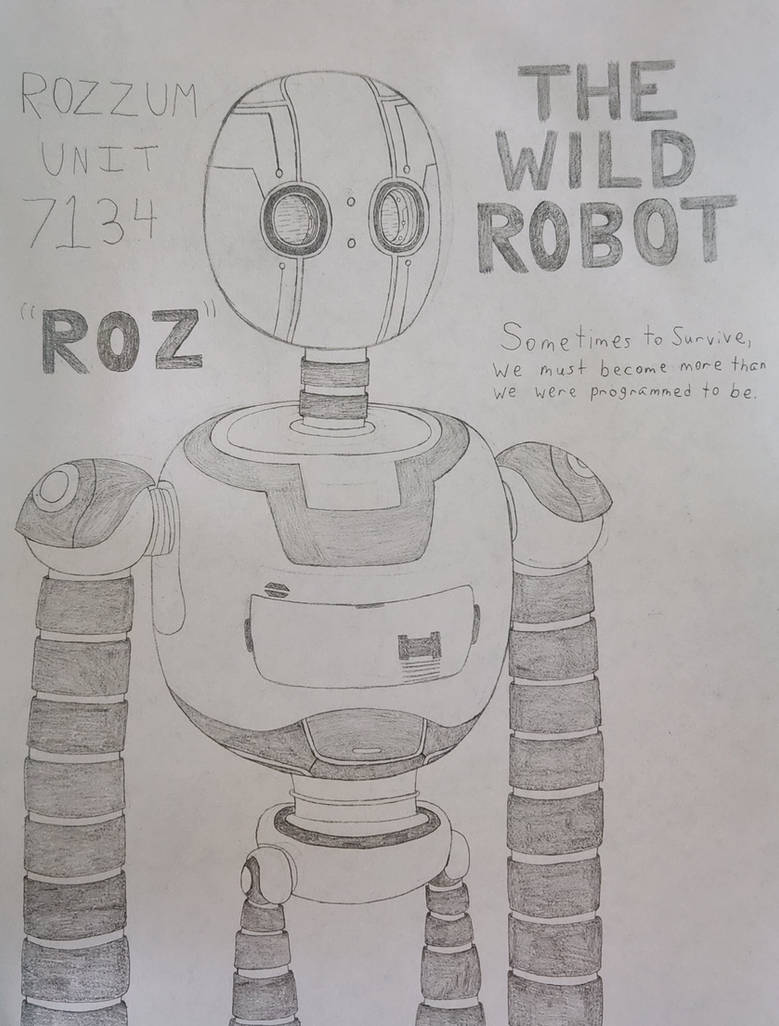 ROZZUM
UNIT
7134
"ROZ"
THE
WILD
ROBOT
Sometimes to Survive,
We must become more than
we were programmed to be.